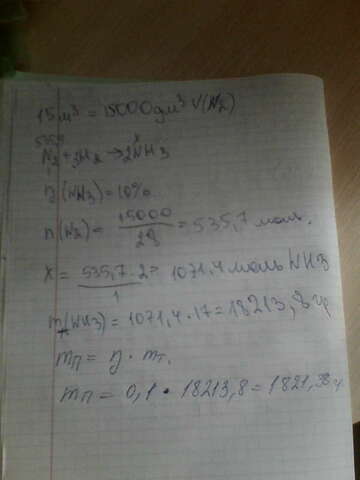 15 м³ = 15000 дм³ V(N₂)
535,7 x
N₂ + 3H₂ → 2NH3
1
η (NH3) = 10%
n(N₂) = 15000/28 = 535,7 моль.
X = 535,7 · 2/1 = 1071,4 моль NH3
m(NH3) = 1071,4 · 17 = 18213,8 гр
mп = η · mт.
mп = 0,1 · 18213,8 = 1821,38 г